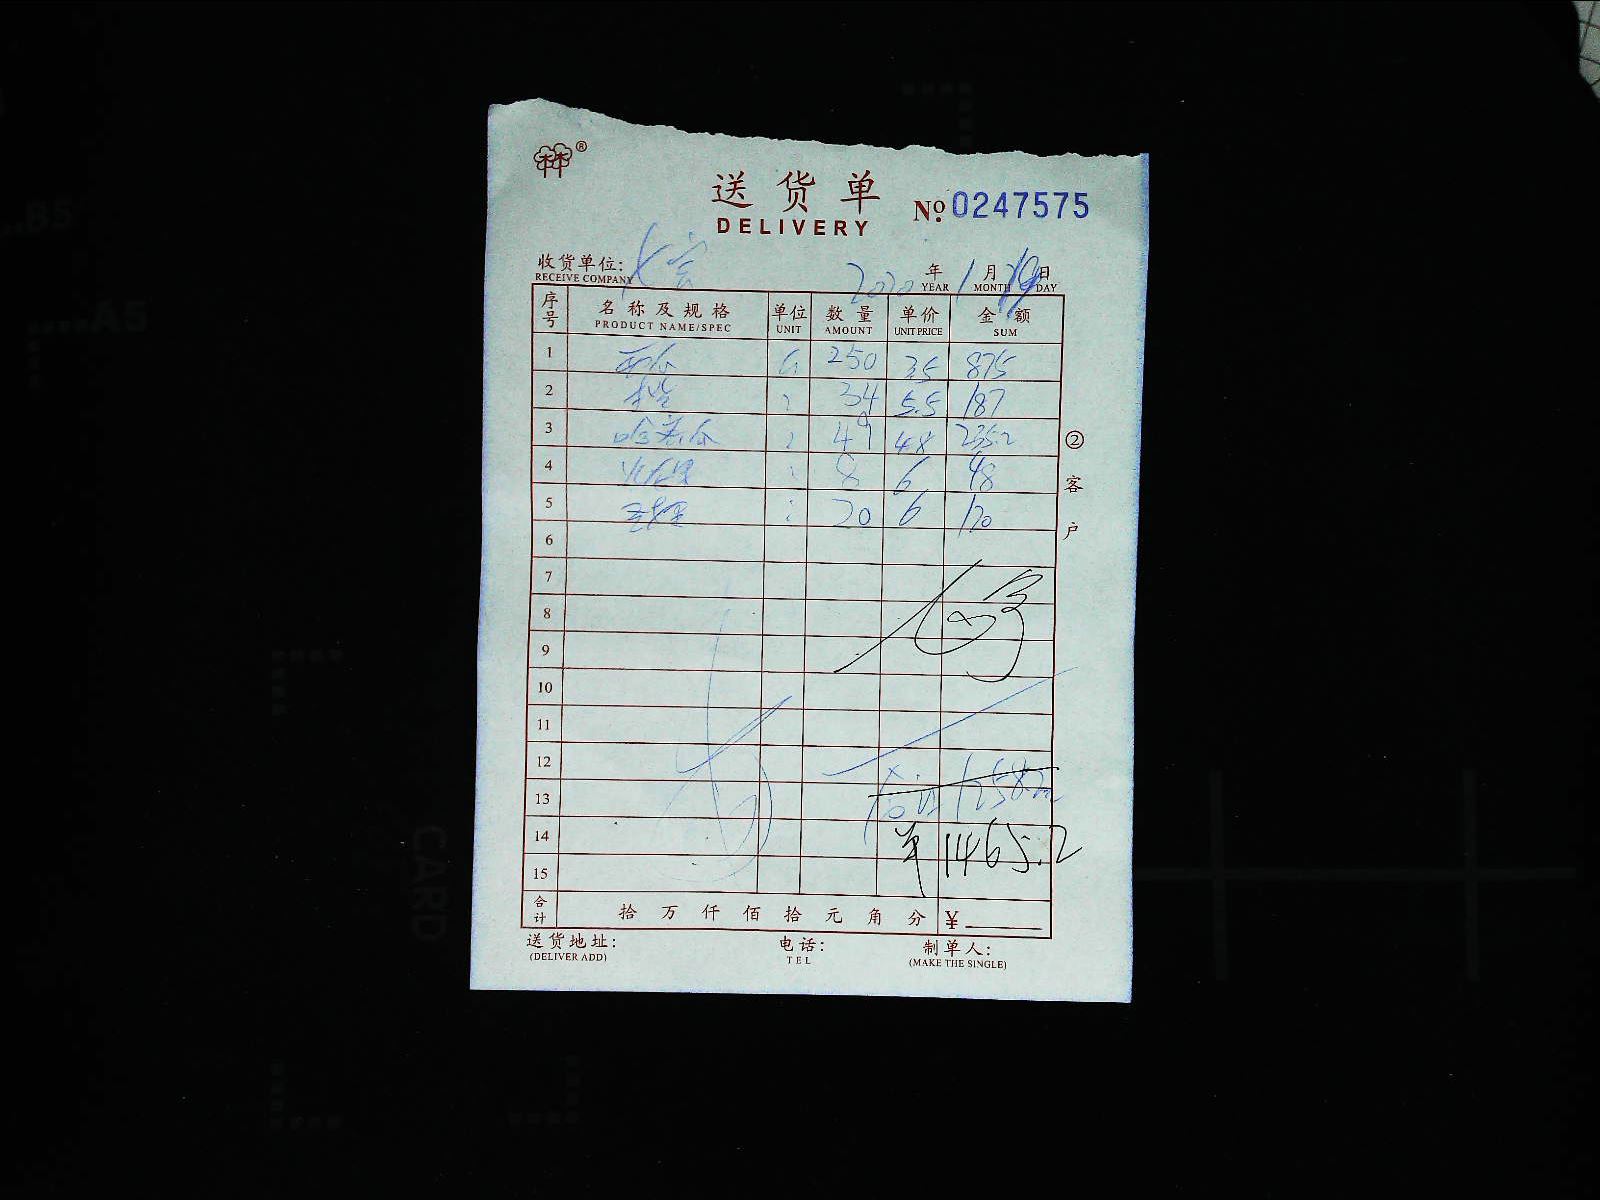 送货单
DELIVERY
№ 0247575
收货单位:
RECEIVE COMPANY
2020 年 1 月 19 日
YEAR MONTH DAY
序号 名称及规格 单位 数量 单价 金额
PRODUCT NAME/SPEC UNIT AMOUNT UNIT PRICE SUM
1 西瓜 250 3.5 875
2 34 5.5 187
3 哈密瓜 49 4.8 235.2
4 火龙果 8 6 48
5 20 6 120
6
7
8
9
10
11
12
13
14 1465.2
15
合计 拾 万 仟 佰 拾 元 角 分 ¥
送货地址: 电话: 制单人:
(DELIVER ADD) TEL (MAKE THE SINGLE)
② 客户
B5
A5
CARD